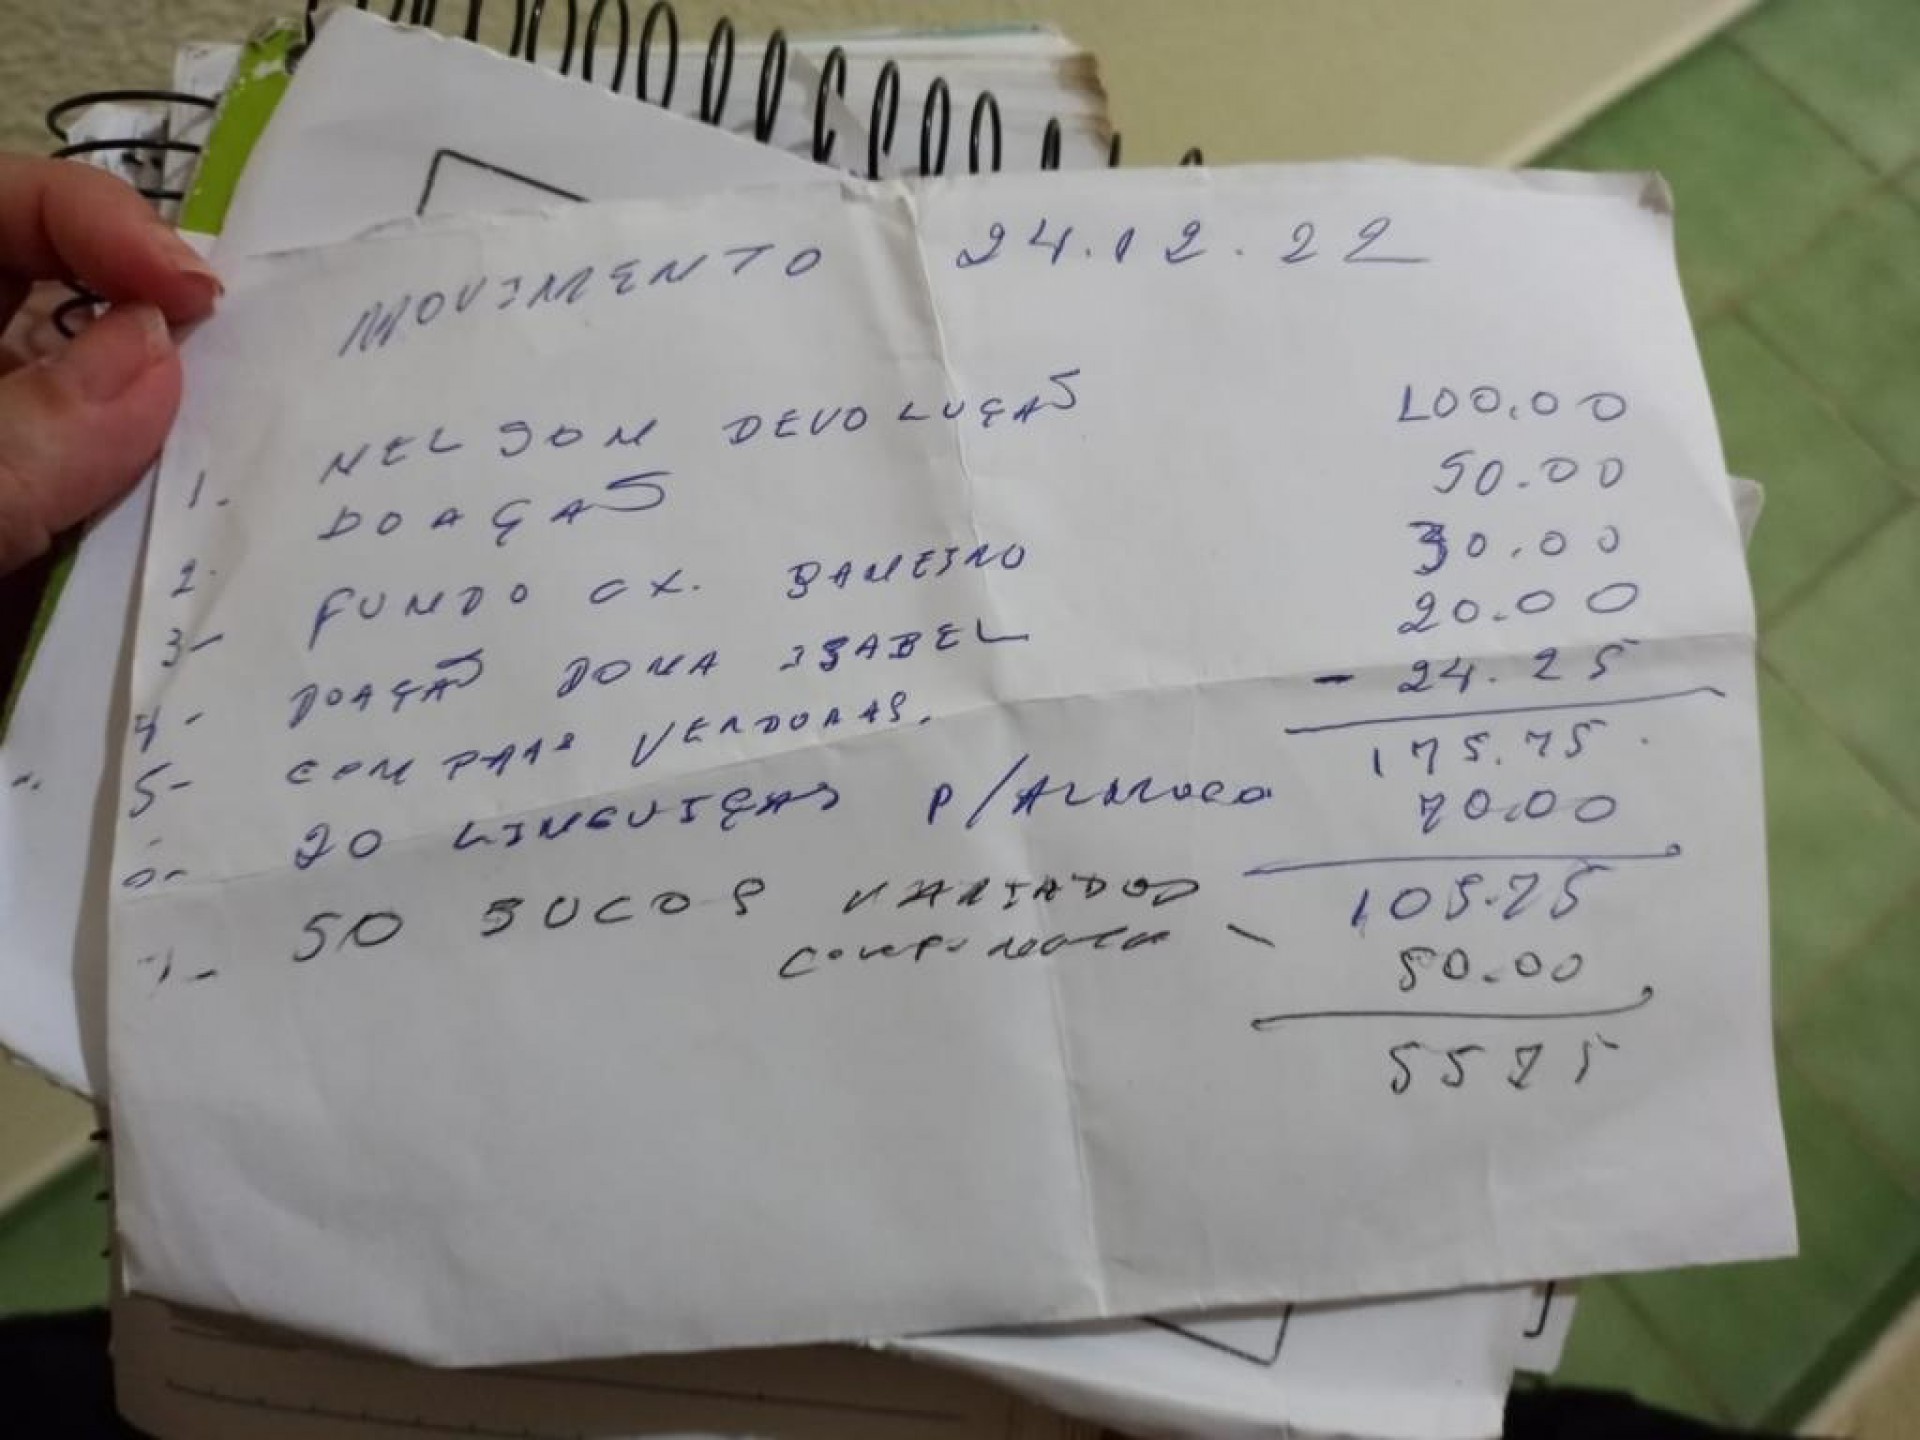 MOVIMENTO 24.12.22
1- NELSON DEVOLUÇÃO 100.00
2- DOAÇÃO 50.00
3- FUNDO CX. BANEIRO 30.00
4- DOAÇÃO DONA ISABEL 20.00
5- COMPRAS VERDURAS. - 24.25
175.75
20 LINGUIÇAS P/ALMOÇO 70.00
105.75
50 SUCOS VARIADOS - 50.00
5575